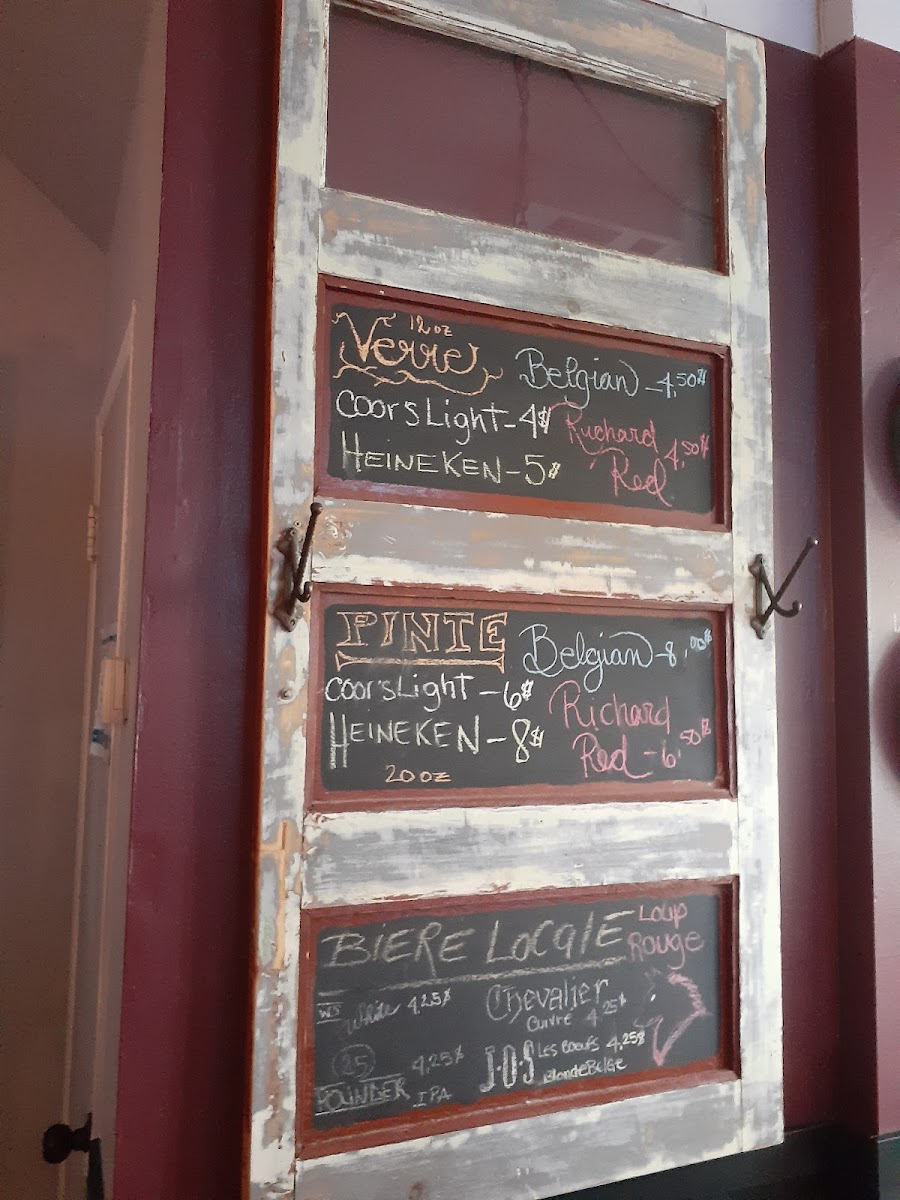 12oz
Verre
Belgian - 4,50$
Coors Light - 4$
Richard
Red 4,50$
HEINEKEN - 5$
PINTE
Belgian - 8,00$
Coor's Light - 6$
Richard
Red - 6,50$
HEINEKEN - 8$
20oz
BIERE LOCALE
Loup
Rouge
White 4,25$
Chevalier
Cuivré 4,25$
25 4,25$
POUNDER IPA
J.O.S Les Boeufs 4,25$
Blonde Belge